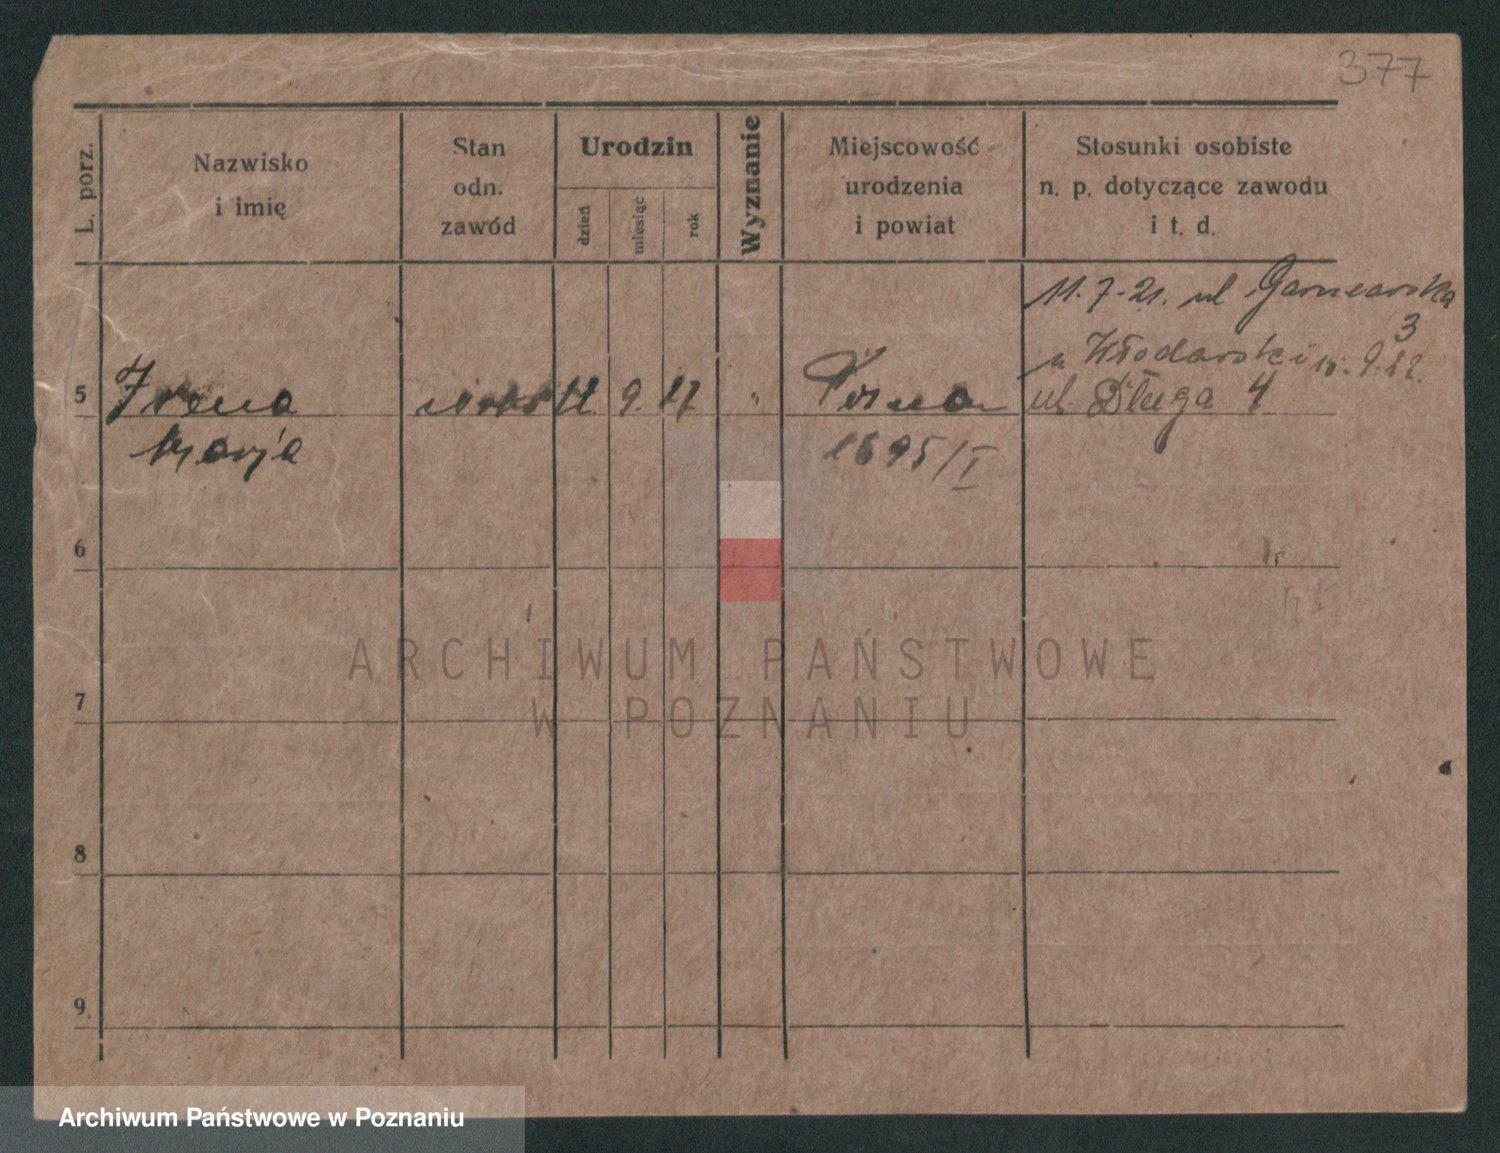 377
L. porz.
Nazwisko
i imię
Stan
odn.
zawód
Urodzin
dzień
miesiąc
rok
Wyznanie
Miejscowość
urodzenia
i powiat
Stosunki osobiste
n. p. dotyczące zawodu
i t. d.
11.7.21. ul Garncarska
3
Włodarski 9.22.
5 Irena 9. 17 "
ul. Długa 4
Marja
1695/I
6
ARCHIWUM PAŃSTWOWE
W POZNANIU
7
8
9
Archiwum Państwowe w Poznaniu